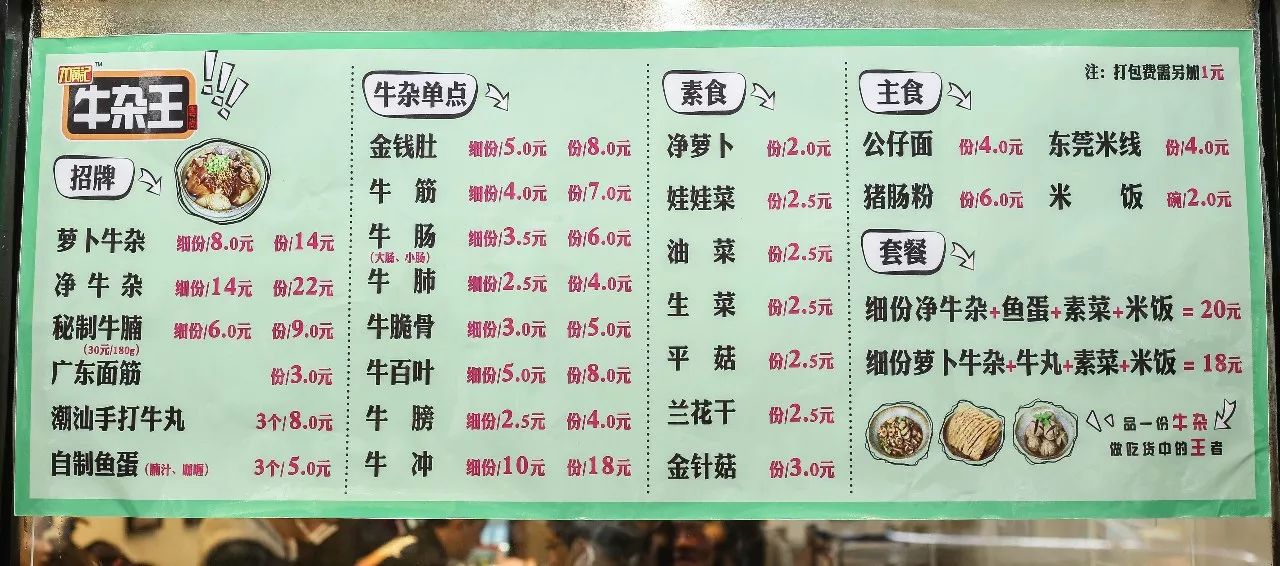 牛杂王
TM
招牌
萝卜牛杂 细份/8.0元 份/14元
净牛杂 细份/14元 份/22元
秘制牛腩 细份/6.0元 份/9.0元
(30元/180g)
广东面筋 份/3.0元
潮汕手打牛丸 3个/8.0元
自制鱼蛋(腩汁、咖喱) 3个/5.0元
牛杂单点
金钱肚 细份/5.0元 份/8.0元
牛筋 细份/4.0元 份/7.0元
牛肠 细份/3.5元 份/6.0元
(大肠、小肠)
牛肺 细份/2.5元 份/4.0元
牛脆骨 细份/3.0元 份/5.0元
牛百叶 细份/5.0元 份/8.0元
牛膀 细份/2.5元 份/4.0元
牛冲 细份/10元 份/18元
素食
净萝卜 份/2.0元
娃娃菜 份/2.5元
油菜 份/2.5元
生菜 份/2.5元
平菇 份/2.5元
兰花干 份/2.5元
金针菇 份/3.0元
注：打包费需另加1元
主食
公仔面 份/4.0元 东莞米线 份/4.0元
猪肠粉 份/6.0元 米饭 碗/2.0元
套餐
细份净牛杂+鱼蛋+素菜+米饭=20元
细份萝卜牛杂+牛丸+素菜+米饭=18元
品一份牛杂
做吃货中的王者